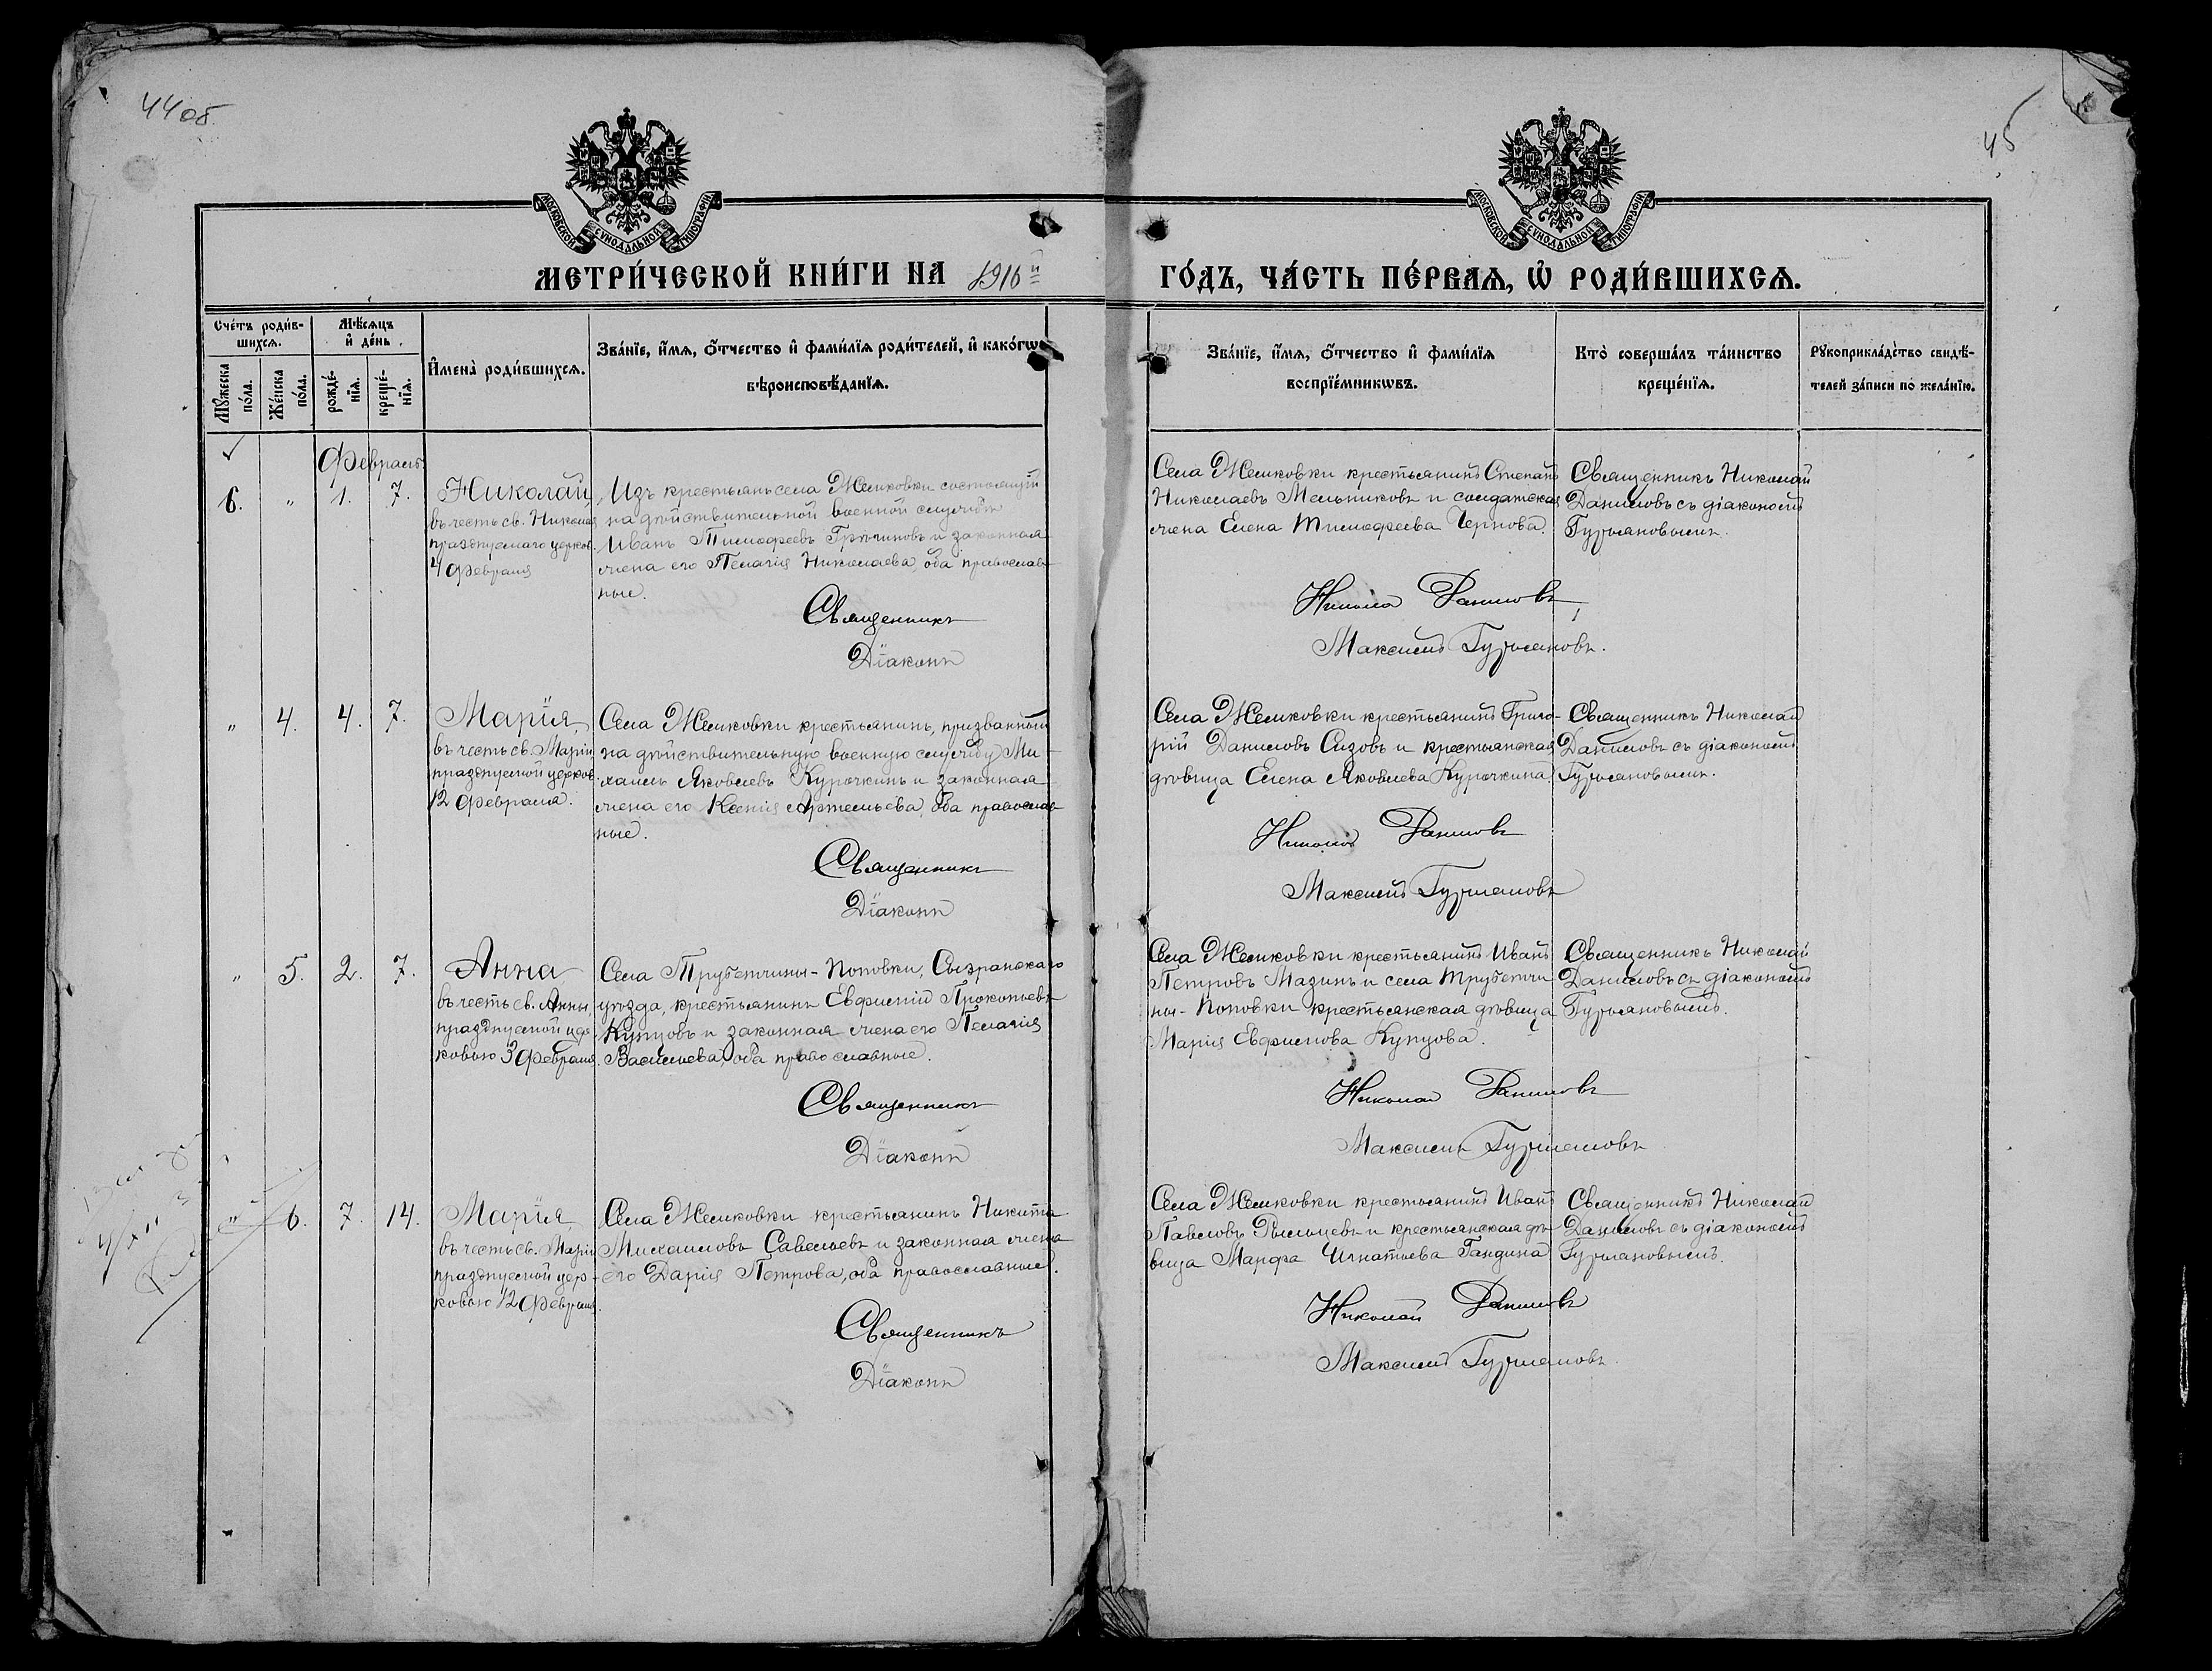 44 об.
45
МОСКОВСКОЙ СѴНОДАЛЬНОЙ ТИПОГРАФІИ
МОСКОВСКОЙ СѴНОДАЛЬНОЙ ТИПОГРАФІИ
МЕТРИ́ЧЕСКОЙ КНИ́ГИ НА 1916 й
ГО́ДЪ, ЧА́СТЬ ПЕ́РВАѦ, Ѡ҆ РОДИ́ВШИХСѦ.
Сче́тъ роди́в-
шихсѧ.
Мѣ́сѧцъ
и҆ де́нь.
Мꙋ́жеска
по́ла.
Же́нска
по́ла.
рожде́-
нїѧ.
креще́-
нїѧ.
И҆мена̀ роди́вшихсѧ.
Зва́нїе, и҆́мѧ, о҆́тчество и҆ фами́лїѧ роди́телей, и҆ како́гѡ
вѣроисповѣ́данїѧ.
Зва́нїе, и҆́мѧ, о҆́тчество и҆ фами́лїѧ
воспрїе́мникѡвъ.
Кто̀ соверша́лъ та́инство
креще́нїѧ.
Рꙋкоприкла́дство свидѣ́-
телей за́писи по жела́нїю.
Февраль
6. " 1. 7.
Николай,
въ честь св. Николая
празднуемаго церков.
4 Февраля
Изъ крестьянъ села Жемковки состоящій
на дѣйствительной военной службѣ
Иванъ Тимофеевъ Гречишовъ и законная
жена его Пелагія Николаева, оба православ-
ные.
Священникъ
Діаконъ
Села Жемковки крестьянинъ Степанъ
Николаевъ Мельниковъ и солдатская
жена Елена Тимофеева Чернова.
Священникъ Николай
Даниловъ съ діакономъ
Гурьяновымъ.
Николай Даниловъ
Максимъ Гурьяновъ.
" 4. 4. 7.
Марія,
въ честь св. Маріи,
празднуемой церков.
12 Февраля.
Села Жемковки крестьянинъ, призванный
на дѣйствительную военную службу Ми-
хаилъ Яковлевъ Курочкинъ и законная
жена его Ксенія Артемьева, оба православ-
ные.
Священникъ
Діаконъ
Села Жемковки крестьянинъ Григо-
рій Даниловъ Сизовъ и крестьянская
дѣвица Елена Яковлева Курочкина
Священникъ Николай
Даниловъ съ діакономъ
Гурьяновымъ.
Николай Даниловъ
Максимъ Гурьяновъ
" 5. 2. 7.
Анна
въ честь св. Анны,
празднуемой цер-
ковью 3 Февраля.
Села Трубетчины-Поповки, Сызранскаго
уѣзда, крестьянинъ Евфимій Прокопьевъ
Купцовъ и законная жена его Пелагія
Васильева, оба православные.
Священникъ
Діаконъ
Села Жемковки крестьянинъ Иванъ
Петровъ Мазинъ и села Трубетчи-
ны-Поповки крестьянская дѣвица
Марія Евфимова Купцова.
Священникъ Николай
Даниловъ съ діакономъ
Гурьяновымъ.
Николай Даниловъ
Максимъ Гурьяновъ
" 6. 7. 14.
Марія,
въ честь св. Маріи
празднуемой цер-
ковью 12 Февраля.
Села Жемковки крестьянинъ Никита
Михаиловъ Савельевъ и законная жена
его Дарія Петрова, оба православные.
Священникъ
Діаконъ
Села Жемковки крестьянинъ Иванъ
Павловъ Рыльцевъ и крестьянская дѣ-
вица Марфа Игнатьева Гандина
Священникъ Николай
Даниловъ съ діакономъ
Гурьяновымъ.
Николай Даниловъ
Максимъ Гурьяновъ.